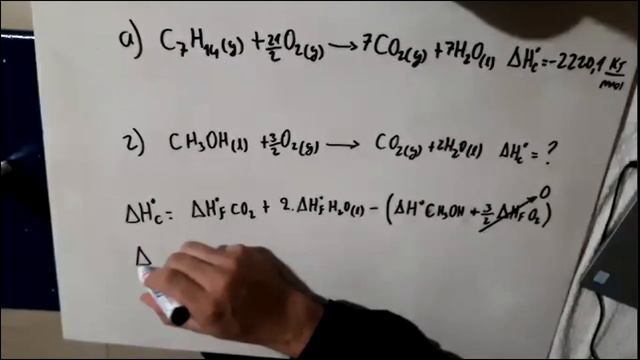 a) C₇H₁₄(g) + 21/2 O₂(g) → 7CO₂(g) + 7H₂O(l) ΔH°c = -2220,1 KJ/mol
2) CH₃OH(l) + 3/2 O₂(g) → CO₂(g) + 2H₂O(l) ΔH°c = ?
ΔH°c = ΔH°f CO₂ + 2.ΔH°f H₂O(l) - (ΔH° CH₃OH + 3/2 ΔH°f O₂) 0
Δ